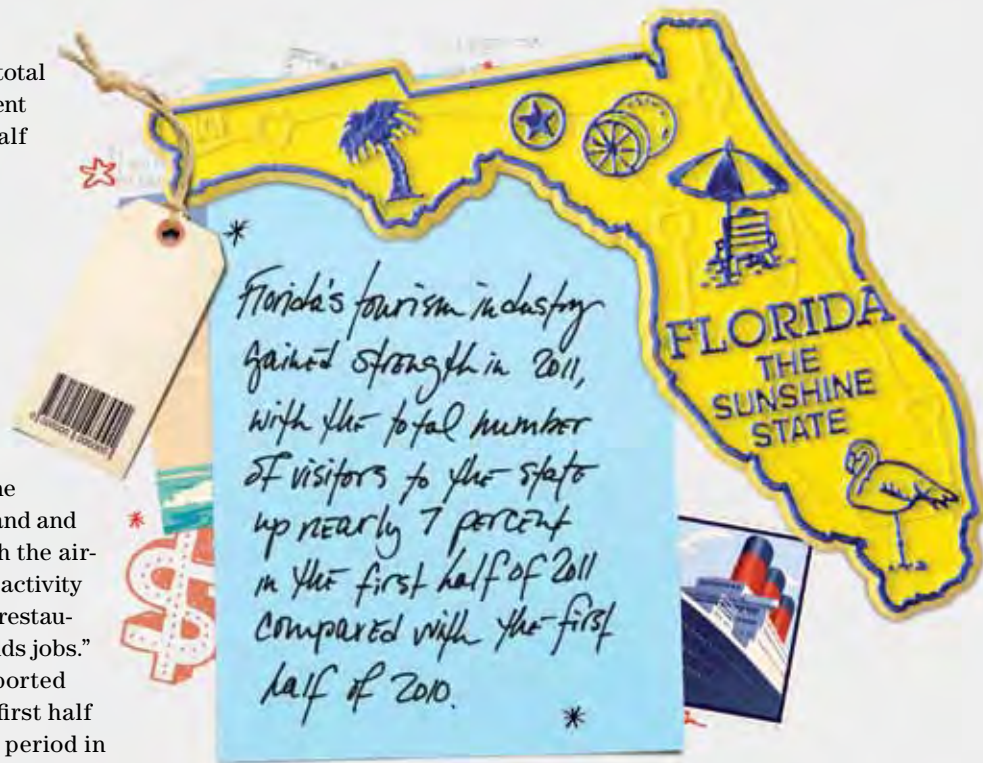 total
ent
alf
ne
and and
h the air-
activity
restau-
ds jobs.”
ported
first half
period in
*
Florida's tourism industry
gained strength in 2011,
with the total number
of visitors to the state
up nearly 7 percent
in the first half of 2011
compared with the first
half of 2010.
*
FLORIDA
THE
SUNSHINE
STATE
$